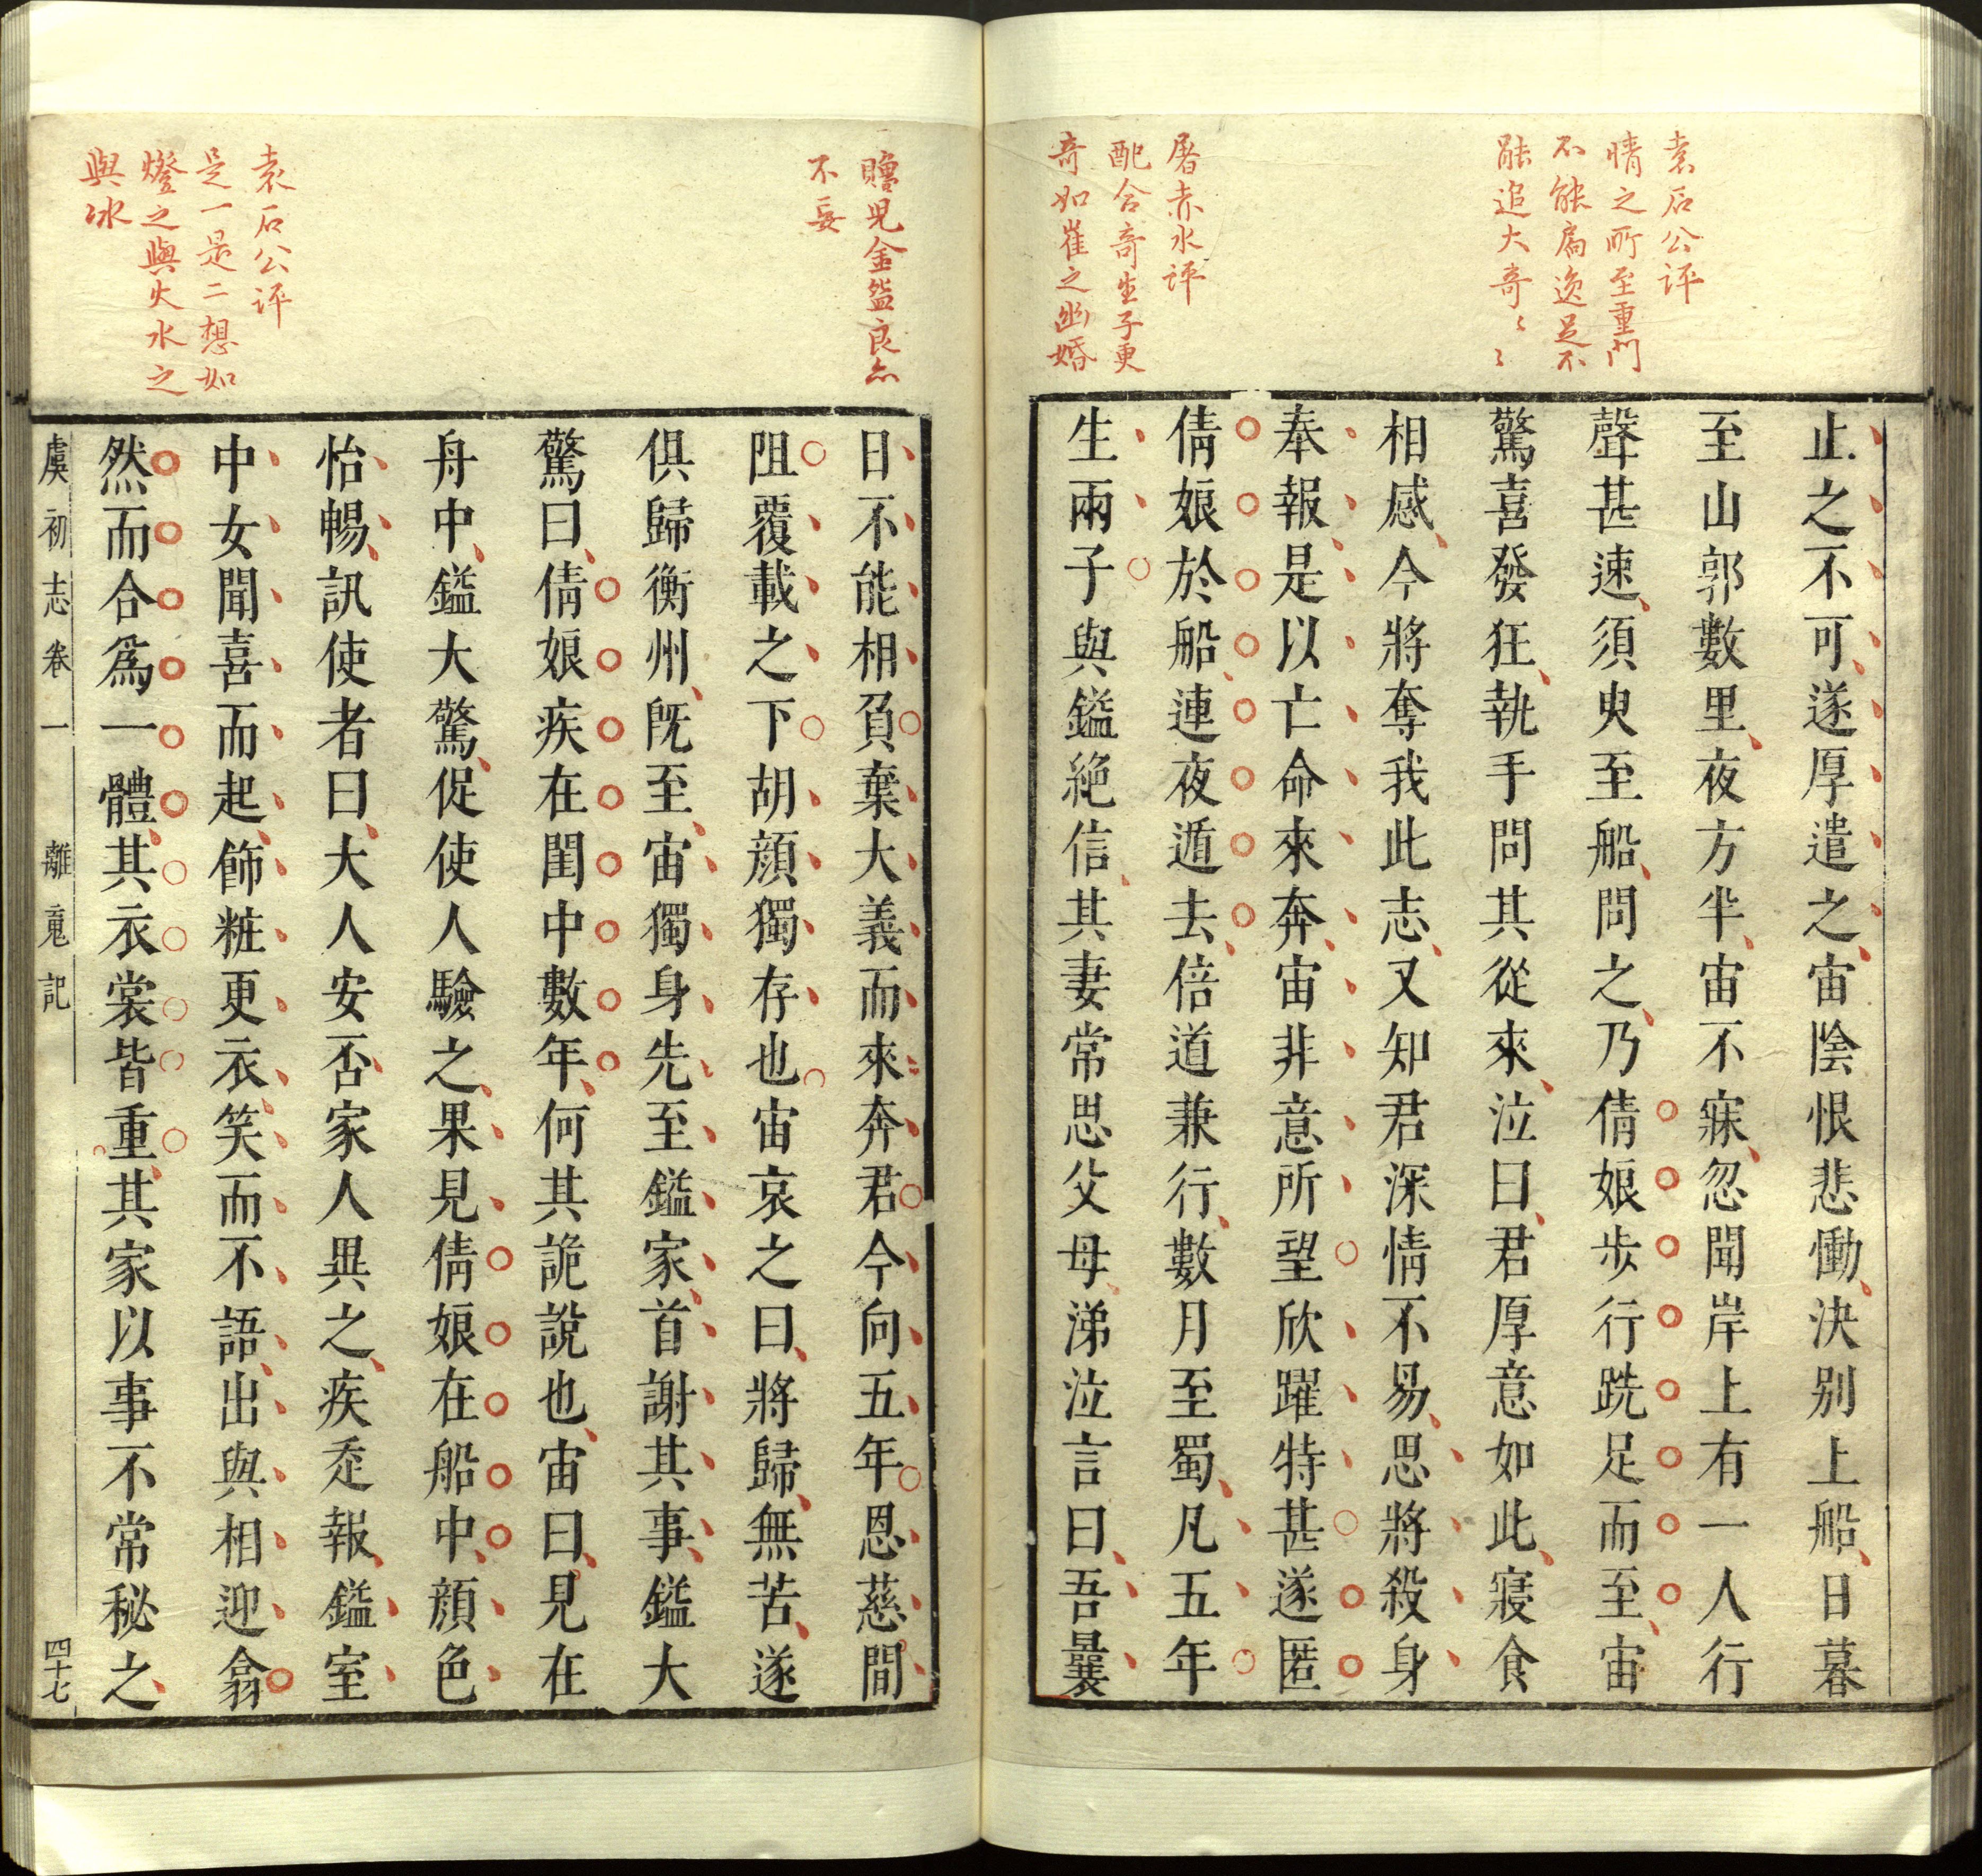 袁石公評
情之所至重門
不能扃逸足不
能追大奇〻〻
屠赤水評
配合奇生子更
奇如崔之幽婚
止之不可遂厚遣之宙陰恨悲慟決别上船日暮
至山郭數里夜方半宙不寐忽聞岸上有一人行
聲甚速須臾至船問之乃倩娘步行跣足而至宙
驚喜發狂執手問其從來泣曰君厚意如此寢食
相感今將奪我此志又知君深情不易思將殺身
奉報是以亡命來奔宙非意所望欣躍特甚遂匿
倩娘於船連夜遁去倍道兼行數月至蜀凡五年
生兩子與鎰絶信其妻常思父母涕泣言曰吾曩
贈兒金盌良亦
不妄
袁石公評
是一是二想如
燈之與火水之
與冰
日不能相負棄大義而來奔君今向五年恩慈間
阻覆載之下胡顔獨存也宙哀之曰將歸無苦遂
俱歸衡州既至宙獨身先至鎰家首謝其事鎰大
驚曰倩娘疾在閨中數年何其詭說也宙曰見在
舟中鎰大驚促使人驗之果見倩娘在船中顔色
怡暢訊使者曰大人安否家人異之疾走報鎰室
中女聞喜而起飾粧更衣笑而不語出與相迎翕
然而合爲一體其衣裳皆重其家以事不常秘之
虞初志卷一 離䰟記 四十七